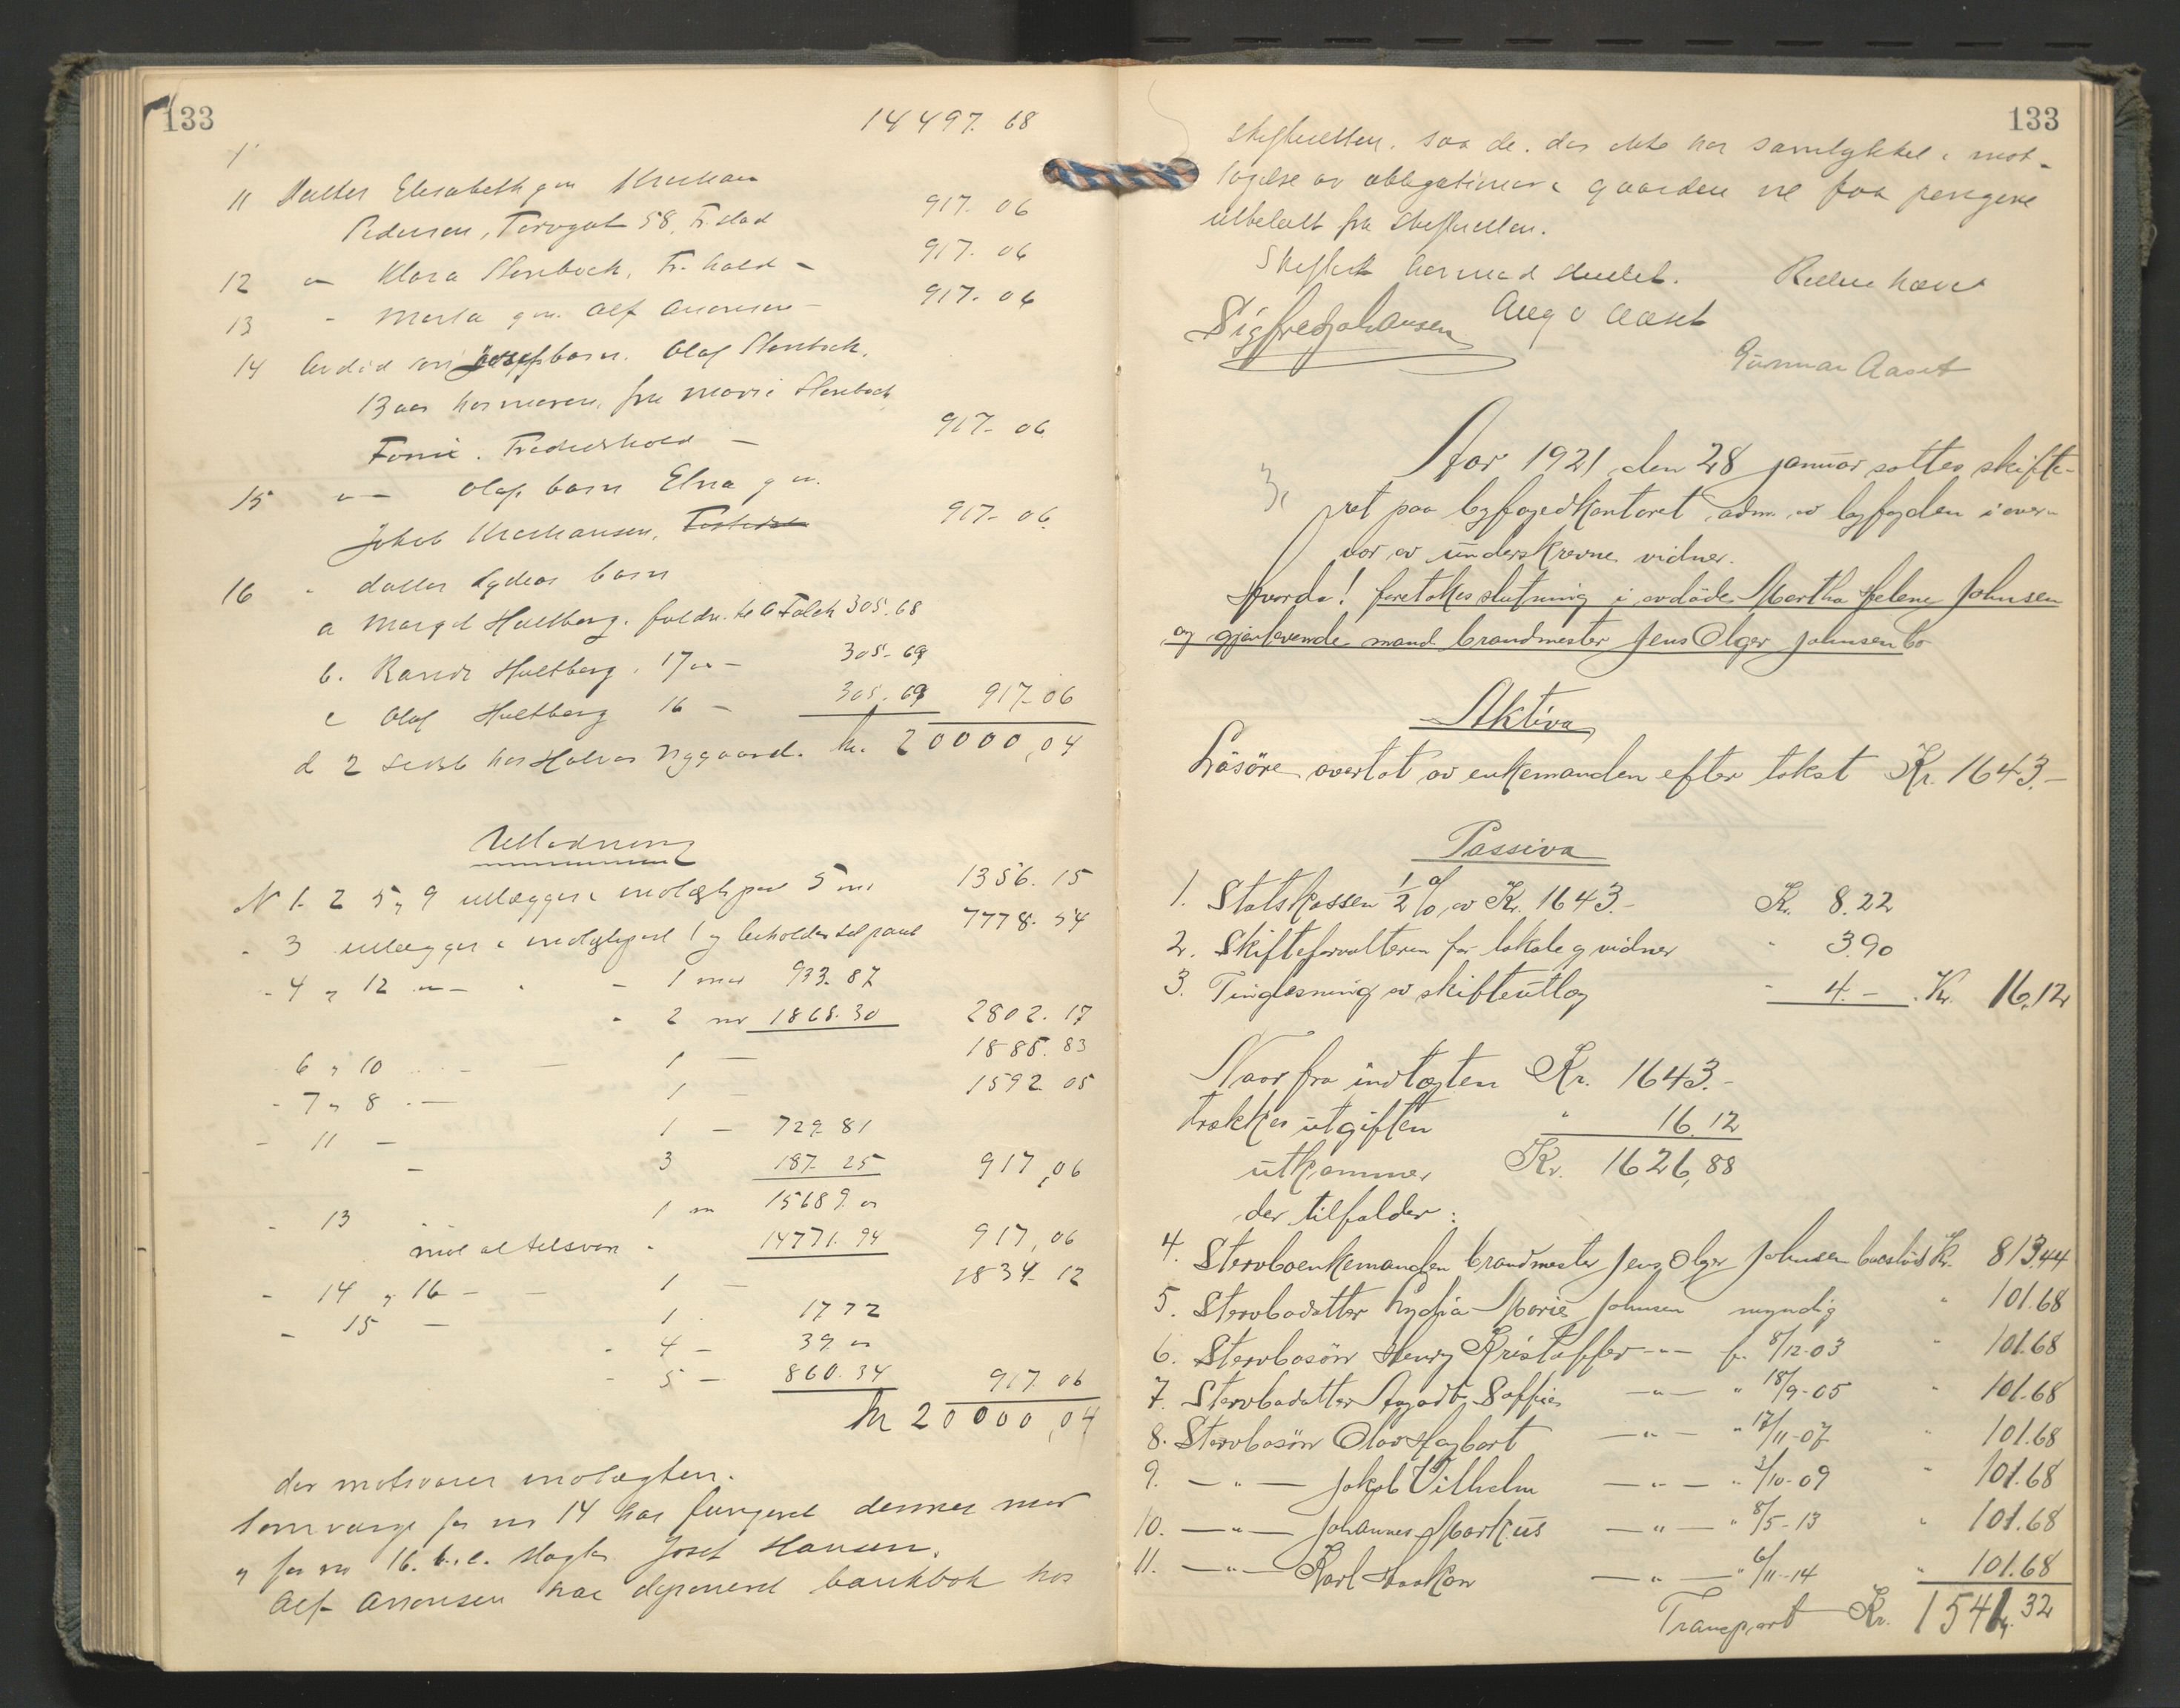 133
14497. 68
11 Datter Elisabeth g m Kristian
Pedersen, Torvgat 58, Fr.stad 917. 06
12 " Klara Stenbock, Fr. hald - 917. 06
13 " Marta g m. Alf Aronsen - 917. 06
14 Avdød søn Josefs barn. Olaf Stenbock,
13 aar hos moren, fru Marie Stenbock
Fredrikshald - 917. 06
15 " Olafs barn Elna g m.
Jakob Kristiansen, 917. 06
16 " datter Lydias barn
a Margit Hultberg. 305. 68
b. Randi Hultberg, 17 aar - 305. 69
c Olaf Hultberg 16 - 305. 69 917. 06
d 2 hos Halvor Nygaard. Kr. 20000,04
Utlodning
N 1. 2 5 og 9 utlægges i indtægtspost 5 med 1356. 15
- 3 utlægges i indtægtspost 1 og beholder til pant 7778. 54
- 4 og 12 - " - 1 med 933. 87
- 2 m 1868. 30 2802. 17
6 og 10 - 1 - 1885. 83
- 7 og 8 - 1 - 1592. 05
- 11 - 1 - 729. 81
- 3 187. 25 917,06
- 13 1 m 15689. 00
mot at tilsvare 14771. 94 917,06
- 14 og 16 - 1 - 1834. 12
- 15 - 1. 17 72
- 4 - 39. 00
- 5 - 860. 34 917. 06
Kr 20000,04
der motsvarer indtægten.
Som værge for nr 14 har fungeret dennes mor
og for nr 16. b. c. Josef Hansen.
Alf Aronsen har deponeret bankbok hos
133
Skifteretten, saa de, der ikke har samtykket i mot-
tagelse av obligationer i gaarden vil faa pengene
utbetalt fra Skifteretten.
Skiftet hermed sluttet.
Sigfred Johansen Aug O Aaset
Gunnar Aaset
Aar 1921 den 28 januar sattes skifte-
ret paa byfogedkontoret, adm. av byfogden i over-
vær av underskrevne vidner.
Hvorda! foretokes slutning i avdøde Martha Helene Johnsen
og gjenlevende mand brandmester Jens Olger Johnsen bo
Aktiva
Løsøre overtat av enkemanden efter takst Kr. 1643.-
Passiva
1. Statskassen 1/2 % av Kr. 1643.- Kr. 8.22
2. Skifteforvalteren for lokale og vidner " 3.90
3. Tinglæsning av skifteutlæg " 4.- Kr. 16,12
Naar fra indtægten Kr. 1643.-
trækkes utgiften " 16.12
utkommer Kr. 1626,88
der tilfalder:
4. Stervboenkemanden brandmester Jens Olger Johnsen boeslod Kr. 813,44
5. Stervbodatter Lydia Marie Johnsen myndig " 101.68
6. Stervbosøn Henry Kristoffer -"- f. 8/12-03 " 101.68
7. Stervbodatter Soffie -"- " 18/9-05 " 101.68
8. Stervbosøn Olav Hagbart -"- " 17/11-07 " 101.68
9. -"- Jakob Vilhelm -"- " 3/10-09 " 101.68
10. -"- Johannes Markus -"- " 8/5-13 " 101.68
11. -"- Karl Haakon -"- " 6/11-14 " 101.68
Transport Kr. 1541,32